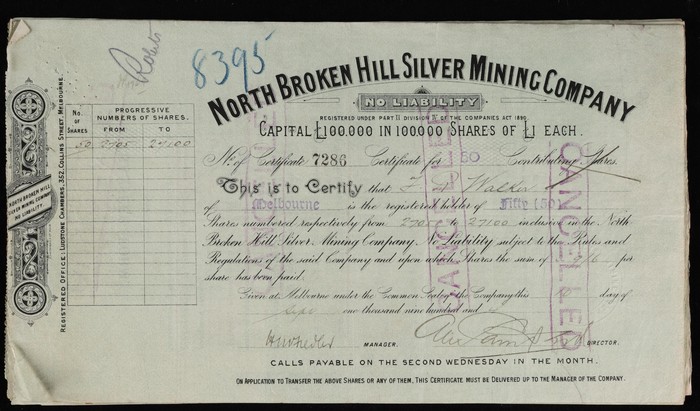 8395
Roberts
NORTH BROKEN HILL SILVER MINING COMPANY
NO LIABILITY
REGISTERED UNDER PART II DIVISION IV OF THE COMPANIES ACT 1890.
CAPITAL £100.000 IN 100000 SHARES OF £1 EACH.
No. of Certificate 7286 Certificate for 50 Contributing Shares.
This is to Certify that Walker
of Melbourne is the registered holder of Fifty (50)
Shares numbered respectively from to 27100 inclusive in the North
Broken Hill Silver Mining Company, No Liability subject to the Rules and
Regulations of the said Company and upon which Shares the sum of per
share has been paid.
Given at Melbourne under the Common Seal of the Company this day of
one thousand nine hundred and
MANAGER.
DIRECTOR.
CALLS PAYABLE ON THE SECOND WEDNESDAY IN THE MONTH.
ON APPLICATION TO TRANSFER THE ABOVE SHARES OR ANY OF THEM, THIS CERTIFICATE MUST BE DELIVERED UP TO THE MANAGER OF THE COMPANY.
CANCELLED
CANCELLED
CANCELLED
No. OF SHARES
PROGRESSIVE NUMBERS OF SHARES.
FROM TO
50 27100
NORTH BROKEN HILL
SILVER MINING COMPANY
NO LIABILITY.
REGISTERED OFFICE: LUDSTONE CHAMBERS, 352, COLLINS STREET, MELBOURNE.